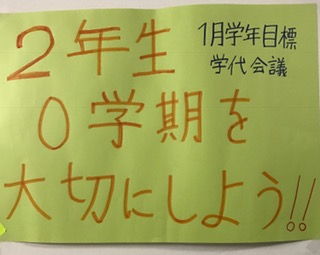 1月学年目標
学代会議
2年生
0学期を
大切にしよう!!